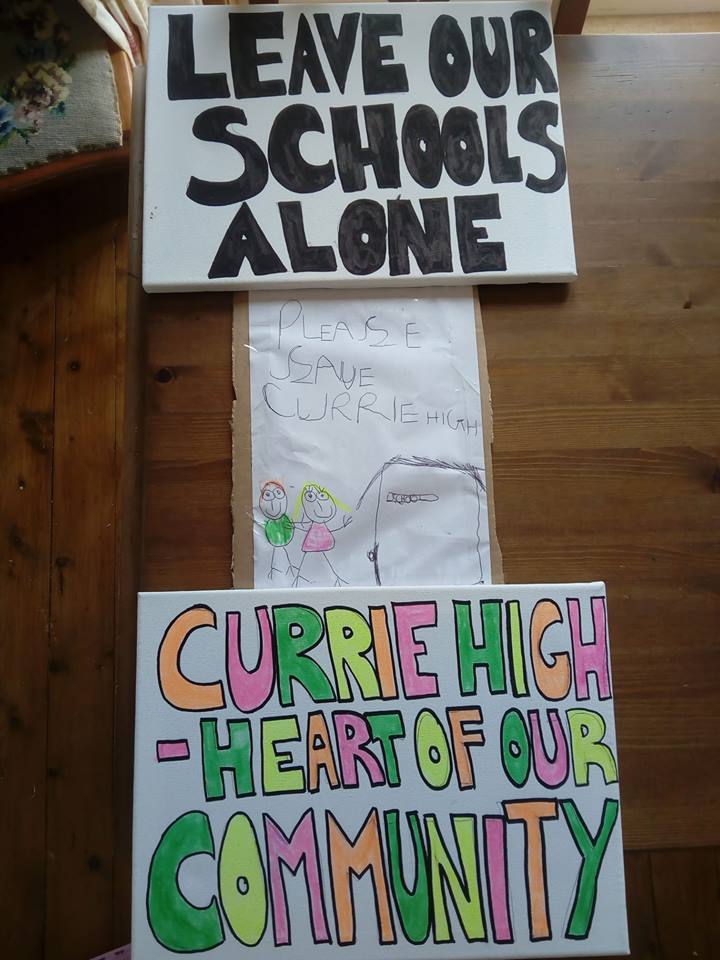 LEAVE OUR
SCHOOLS
ALONE
PLEASE
SAVE
CURRIE HIGH
SCHOOL
CURRIE HIGH
-HEART OF OUR
COMMUNITY